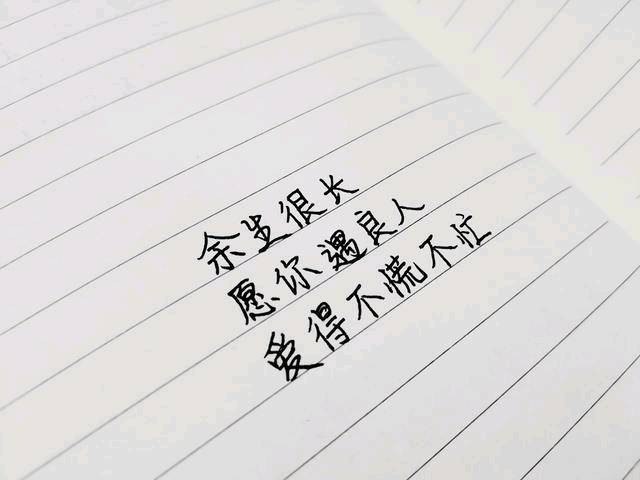 余生很长
愿你遇良人
爱得不慌不忙